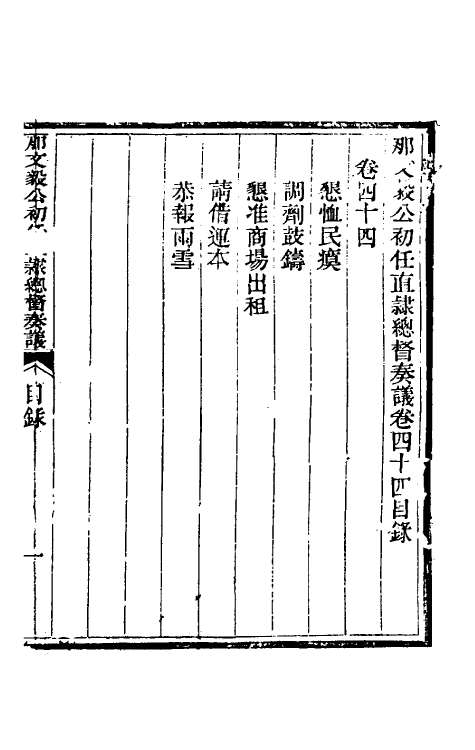 那文毅公初任直隸總督奏議卷四十四目錄
卷四十四
懇恤民瘼
調劑鼓鑄
懇准商場出租
請借運本
恭報雨雪
那文毅公初 隸總督奏議
目錄
一